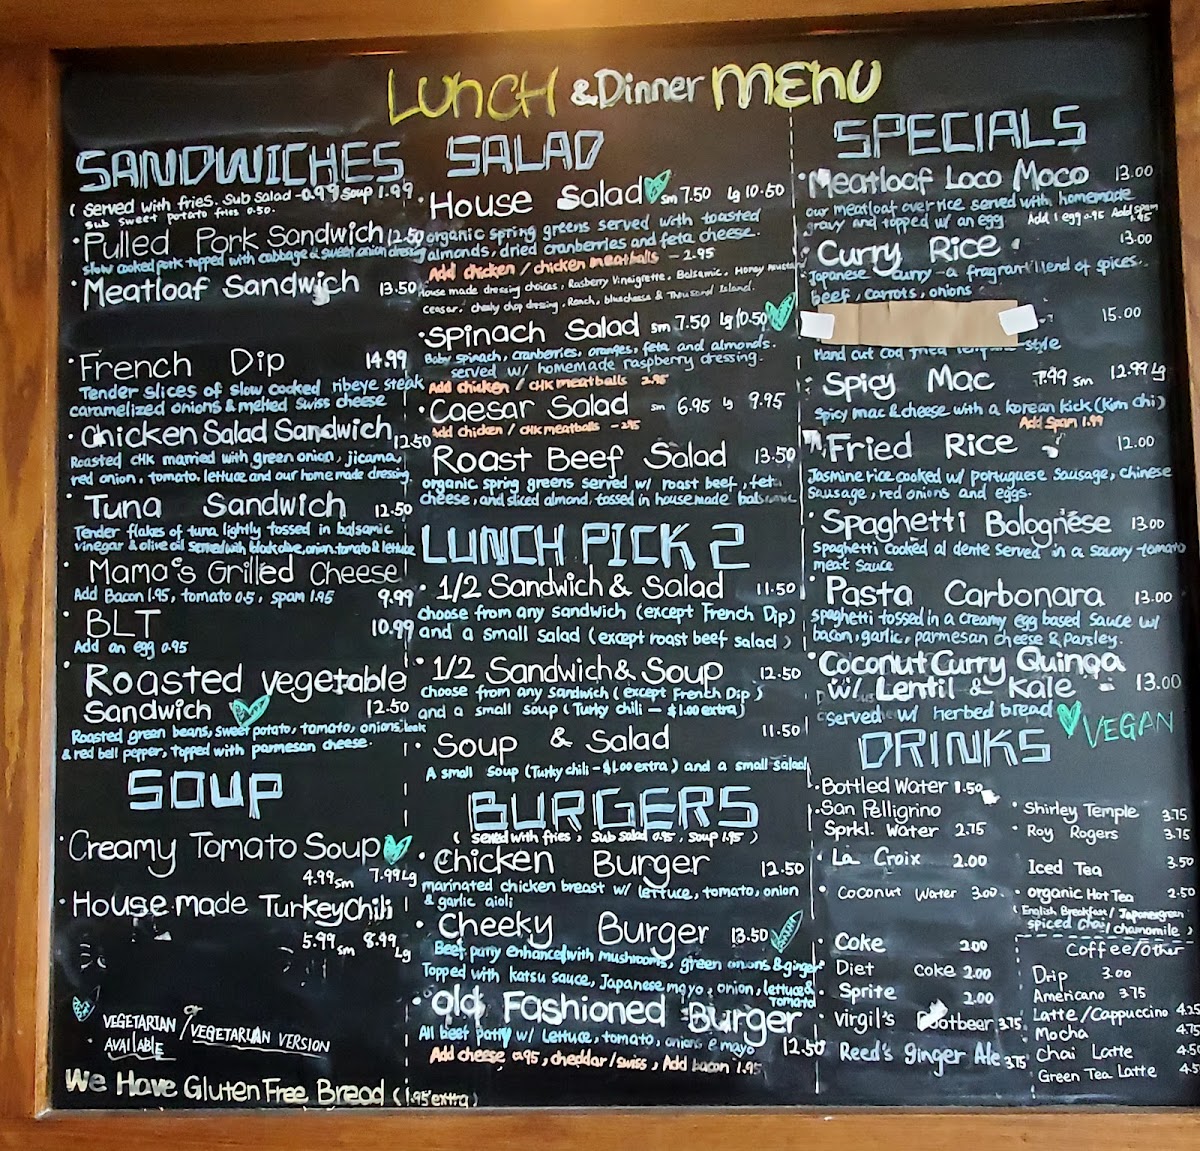 LUNCH & Dinner MENU
SANDWICHES
( served with fries. Sub Salad -0.99 Soup 1.99
Sub Sweet potato fries 0.50.
• Pulled Pork Sandwich 12.50
slow cooked pork topped with cabbage & sweet onion dressing
• Meatloaf Sandwich 13.50
• French Dip 14.99
Tender slices of slow cooked ribeye steak
caramelized onions & melted Swiss cheese
• Chicken Salad Sandwich 12.50
Roasted CHK married with green onion, jicama,
red onion, tomato, lettuce and our homemade dressing.
• Tuna Sandwich 12.50
Tender flakes of tuna lightly tossed in balsamic
vinegar & olive oil served with black olive, onion, tomato & lettuce
• Mama's Grilled Cheese 9.99
Add Bacon 1.95, tomato 0.5, spam 1.95
• BLT 10.99
Add an egg 0.95
• Roasted vegetable
Sandwich 12.50
Roasted green beans, sweet potato, tomato, onions, leek
& red bell pepper, topped with parmesan cheese.
SOUP
• Creamy Tomato Soup
4.99 sm 7.99 Lg
• House made Turkey Chili
5.99 sm 8.99 Lg
VEGETARIAN / or VEGETARIAN VERSION
AVAILABLE
We Have Gluten Free Bread (1.95 extra)
SALAD
• House Salad sm 7.50 lg 10.50
organic spring greens served with toasted
almonds, dried cranberries and feta cheese.
Add chicken / chicken meatballs - 2.95
House made dressing choices, Rasberry Vinaigrette, Balsamic, Honey mustard
Ceasar, cheeky chop dressing, Ranch, bluecheese & Thousand Island.
• Spinach Salad sm 7.50 Lg 10.50
Baby spinach, cranberries, oranges, feta and almonds.
served w/ homemade raspberry dressing.
Add chicken / CHK meatballs 2.95
• Caesar Salad sm 6.95 lg 9.95
Add chicken / CHK meatballs - 2.95
Roast Beef Salad 13.50
organic spring greens served w/ roast beef, feta
cheese, and sliced almond, tossed in housemade balsamic
LUNCH PICK 2
• 1/2 Sandwich & Salad 11.50
choose from any sandwich (except French Dip)
and a small salad (except roast beef salad)
• 1/2 Sandwich & Soup 12.50
choose from any sandwich (except French Dip)
and a small soup (Turky chili — $1.00 extra)
• Soup & Salad 11.50
A small soup (Turky chili - $1.00 extra) and a small salad
BURGERS
( served with fries, Sub salad 0.95, Soup 1.95 )
• Chicken Burger 12.50
marinated chicken breast w/ lettuce, tomato, onion
& garlic aioli
• Cheeky Burger 13.50
Beef patty enhanced with mushrooms, green onions & ginger
Topped with katsu sauce, Japanese mayo, onion, lettuce &
tomato
• Old Fashioned Burger 12.50
All beef patty w/ Lettuce, tomato, onions & mayo
Add cheese 0.95, cheddar/swiss, Add bacon 1.95
SPECIALS
• Meatloaf Loco Moco 13.00
our meatloaf over rice served with homemade
gravy and topped w/ an egg Add 1 egg 0.95 Add spam 1.95
• Curry Rice 13.00
Japanese curry - a fragrant blend of spices.
beef, carrots, onions
15.00
Hand cut cod fried style
• Spicy Mac 7.99 sm 12.99 Lg
Spicy mac & cheese with a korean kick (Kim chi)
Add spam 1.99
Fried Rice 12.00
Jasmine rice cooked w/ portuguese sausage, chinese
Sausage, red onions and eggs.
• Spaghetti Bolognese 13.00
Spaghetti cooked al dente served in a savory tomato
meat sauce
• Pasta Carbonara 13.00
spaghetti tossed in a creamy egg based sauce w/
bacon, garlic, parmesan cheese & parsley.
• Coconut Curry Quinoa
w/ Lentil & Kale 13.00
served w/ herbed bread VEGAN
DRINKS
• Bottled Water 1.50
• San Pelligrino
Sprkl. Water 2.75
• La Croix 2.00
• Coconut Water 3.00
• Coke 2.00
• Diet Coke 2.00
• Sprite 2.00
• Virgil's Rootbeer 3.75
• Reed's Ginger Ale 3.75
• Shirley Temple 3.75
• Roy Rogers 3.75
Iced Tea 3.50
• organic Hot Tea 2.50
(English Breakfast / Japanesegreen
spiced Chai / chamomile )
Coffee/Other
Drip 3.00
Americano 3.75
Latte /Cappuccino 4.25
Mocha 4.75
Chai Latte 4.50
Green Tea Latte 4.5